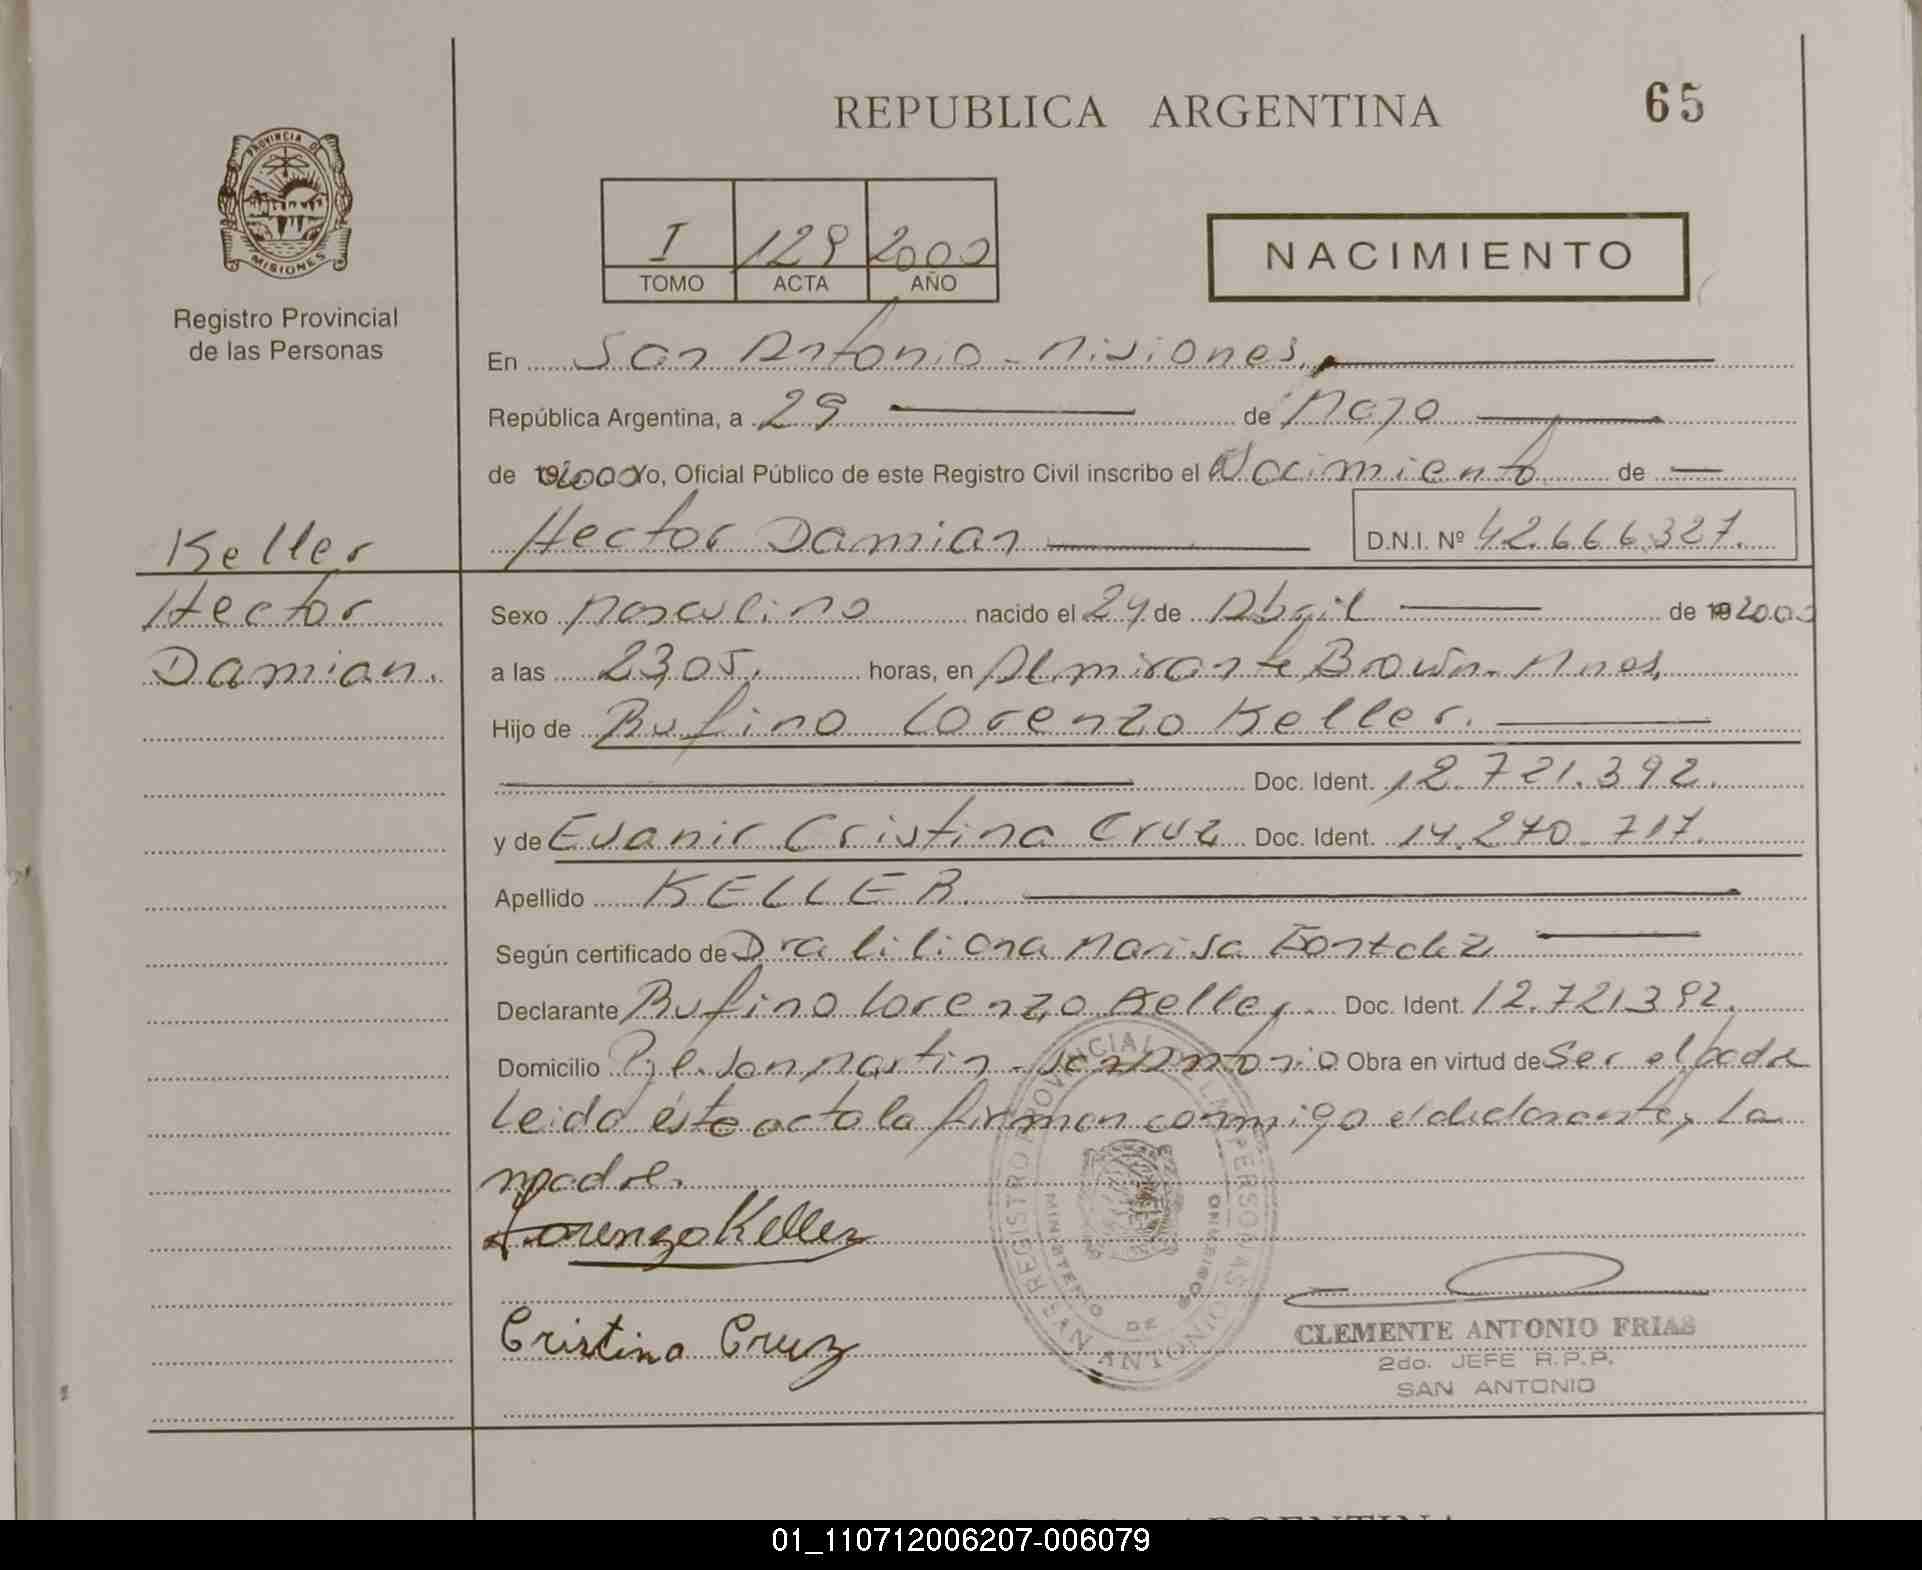 REPUBLICA ARGENTINA
65
PROVINCIA DE
MISIONES
Registro Provincial
de las Personas
I 129 2000
TOMO ACTA AÑO
NACIMIENTO
En San Antonio - Misiones.
República Argentina, a 29 de Mayo
de 192000 Yo, Oficial Público de este Registro Civil inscribo el Nacimiento de
Hector Damian D.N.I. Nº 42.666.327.
Keller
Hector
Damian.
Sexo Masculino nacido el 24 de Abril de 192000
a las 23,05. horas, en Almirante Brown - Mnes.
Hijo de Rufino Lorenzo Keller.
Doc. Ident. 12.721.392.
y de Evanir Cristina Cruz Doc. Ident. 14.270.717.
Apellido KELLER.
Según certificado de Dra Liliana Marisa
Declarante Rufino Lorenzo Keller. Doc. Ident. 12.721392.
Domicilio Pje. San Martin - San Antonio Obra en virtud de Ser el padre
Leida ésta acta la firman conmigo el declarante y La
madre.
Lorenzo Keller
Cristina Cruz
REGISTRO PROVINCIAL DE LAS PERSONAS
MINISTERIO DE GOBIERNO
SAN ANTONIO
CLEMENTE ANTONIO FRIAS
2do. JEFE R.P.P.
SAN ANTONIO
ARGENTINA
01_110712006207-006079